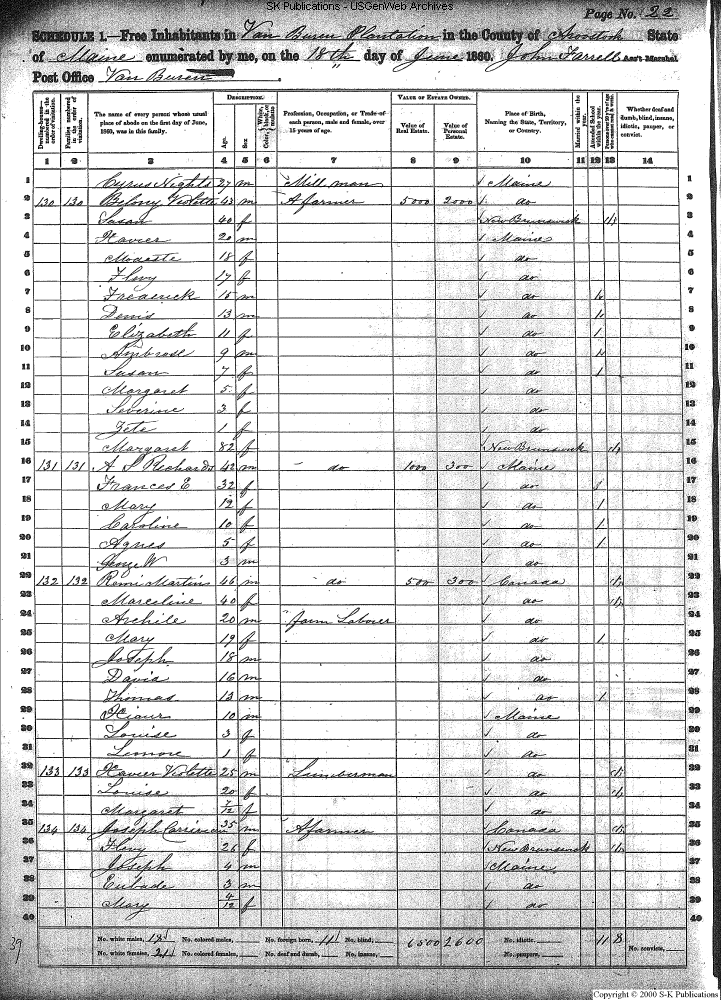 SK Publications - USGenWeb Archives
Page No. 22
SCHEDULE 1.—Free Inhabitants in Van Buren Plantation in the County of Aroostook State
of Maine enumerated by me, on the 18th day of June 1860. John Farrell Ass't Marshal
Post Office Van Buren
Dwelling-houses—numbered in the order of visitation.
Families numbered in the order of visitation.
The name of every person whose usual place of abode on the first day of June, 1860, was in this family.
DESCRIPTION.
Age.
Sex.
Color, White, black, or mulatto
Profession, Occupation, or Trade of each person, male and female, over 15 years of age.
VALUE OF ESTATE OWNED.
Value of Real Estate.
Value of Personal Estate.
Place of Birth, Naming the State, Territory, or Country.
Married within the year.
Attended School within the year.
Whether deaf and dumb, blind, insane, idiotic, pauper, or convict.
1 2 3 4 5 6 7 8 9 10 11 12 13 14
1 Cyrus Nights 27 m Mill man / Maine 1
2 130 130 Belony Violette 43 m A farmer 5000 2000 / do 2
3 Susan 40 f / New Brunswick 1/1 3
4 Xavier 20 m / Maine 4
5 Modeste 18 f / do 5
6 Flavy 17 f / do 6
7 Frederick 15 m / do 1 7
8 Denis 13 m / do 1 8
9 Elizabeth 11 f / do 1 9
10 Ambrose 9 m / do 1 10
11 Susan 7 f / do 1 11
12 Margaret 5 f / do 12
13 Severine 3 f / do 13
14 Zete 1 f / do 14
15 Margaret 82 f / New Brunswick 1/1 15
16 131 131 A S Richards 42 m " do 1000 300 / Maine 16
17 Frances E 32 f / do 1 17
18 Mary 12 f / do 1 18
19 Caroline 10 f / do 1 19
20 Agnes 5 f / do 1 20
21 George W 3 m / do 21
22 132 132 Remi Martins 46 m " do 500 300 / Canada 1/1 22
23 Marceline 40 f / do 1/1 23
24 Archile 20 m " farm Laborer / do 24
25 Mary 19 f / do 1 25
26 Joseph 18 m / do 26
27 David 16 m / do 27
28 Thomas 13 m / do 1 28
29 10 m / Maine 29
30 Louise 3 f / do 30
31 Lenore 1 f / do 31
32 133 133 Xavier Violette 25 m Lumberman / do 1/1 32
33 Louise 20 f / do 1/1 33
34 Margaret 7/12 f / do 34
35 134 134 Joseph 35 m A farmer / Canada 1/1 35
36 Flavy 26 f / New Brunswick 1/1 36
37 Joseph 4 m / Maine 37
38 3 m / do 38
39 Mary 4/12 f / do 39
40 40
No. white males, 18 No. colored males, No. foreign born, 11 No. blind, 6500 2600 No. idiotic, 11 8 No. convicts,
No. white females, 21 No. colored females, No. deaf and dumb, No. insane, No. paupers,
39
Copyright © 2000 S-K Publications